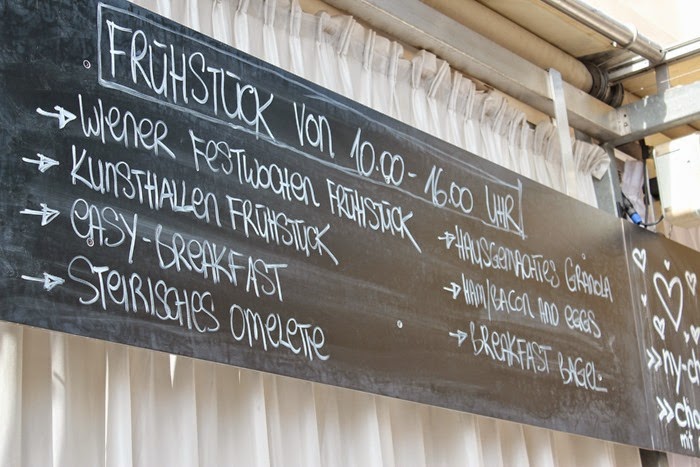 FRÜHSTÜCK VON 10.00-16.00 UHR
→ WIENER FESTWOCHEN FRÜHSTÜCK
→ KUNSTHALLEN FRÜHSTÜCK
→ EASY-BREAKFAST
→ STEIRISCHES OMELETTE
→ HAUSGEMACHTES GRANOLA
→ HAM/BACON AND EGGS
→ BREAKFAST BAGEL
» ny-ch
» cho
mit